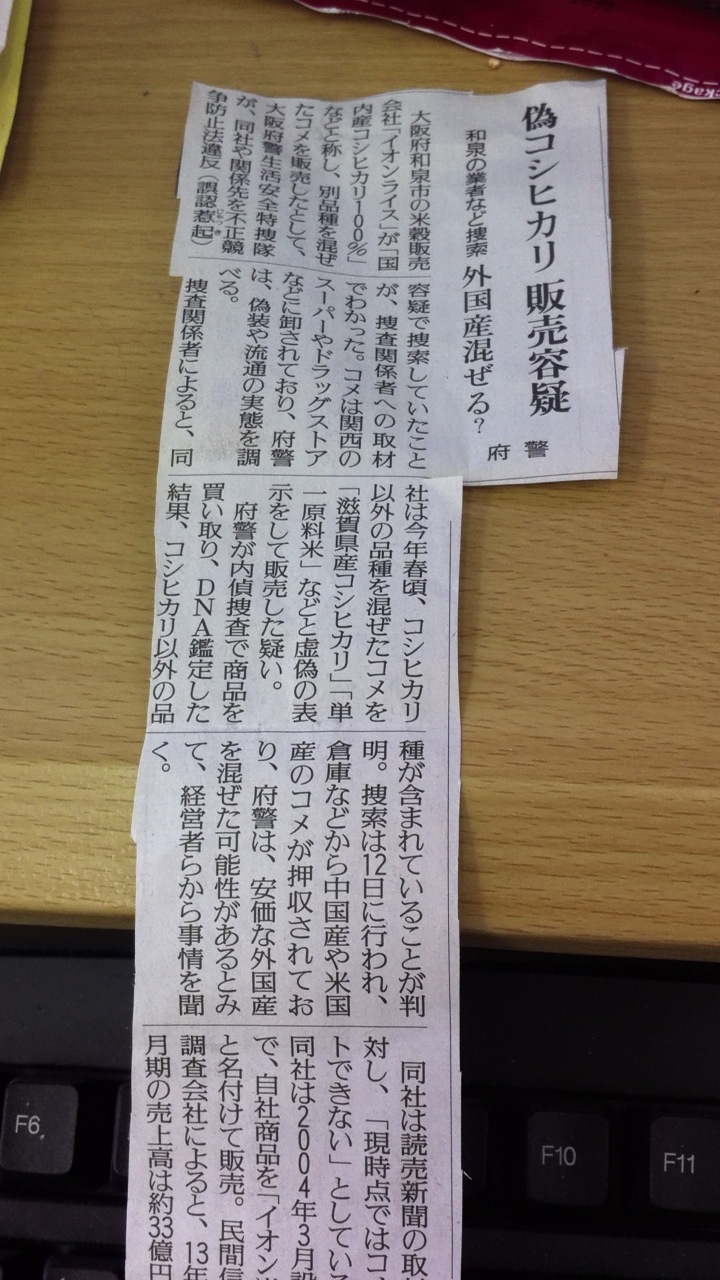 偽コシヒカリ 販売容疑
和泉の業者など捜索 外国産混ぜる?
府警
大阪府和泉市の米穀販売
会社「イオンライス」が「国
内産コシヒカリ100%」
などと称し、別品種を混ぜ
たコメを販売したとして、
大阪府警生活安全特捜隊
が、同社や関係先を不正競
争防止法違反(誤認惹起)
じゃっき
容疑で捜索していたこと
が、捜査関係者への取材
でわかった。コメは関西の
スーパーやドラッグストア
などに卸されており、府警
は、偽装や流通の実態を調
べる。
捜査関係者によると、同
社は今年春頃、コシヒカリ
以外の品種を混ぜたコメを
「滋賀県産コシヒカリ」「単
一原料米」などと虚偽の表
示をして販売した疑い。
府警が内偵捜査で商品を
買い取り、DNA鑑定した
結果、コシヒカリ以外の品
種が含まれていることが判
明。捜索は12日に行われ、
倉庫などから中国産や米国
産のコメが押収されてお
り、府警は、安価な外国産
を混ぜた可能性があるとみ
て、経営者らから事情を聞
く。
同社は読売新聞の取
対し、「現時点ではコ
トできない」としている
同社は2004年3月設
で、自社商品を「イオン
と名付けて販売。民間信
調査会社によると、13年
月期の売上高は約33億円
F6
F10
F11
ckage